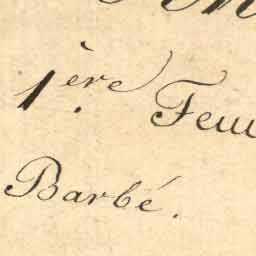 1ère Feu
Barbé.